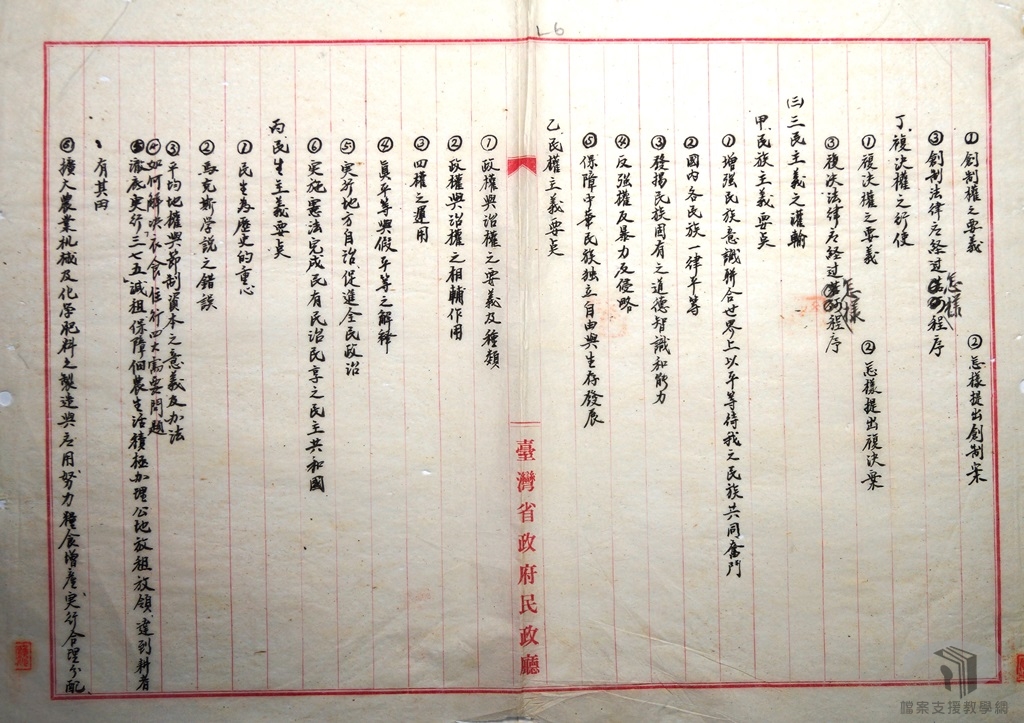 L6
①創制權之要義　②怎樣提出創制案
③創制法律應經過怎樣程序
丁、複決權之行使
①複決權之要義　②怎樣提出複決案
③複決法律应经过怎樣程序
㈢三民主義之灌輸
甲、民族主義要奌
①增強民族意識聯合世界上以平等待我之民族共同奮鬥
②國内各民族一律平等
③發揚民族固有之道德智識和能力
④反強權反暴力反侵略
⑤保障中華民族独立自由與生存發展
乙、民權主義要奌
臺灣省政府民政廳
①政權與治權之要義及種類
②政權與治權之相輔作用
③四權之運用
④眞平等與假平等之解释
⑤実行地方自治促進全民政治
⑥实施憲法完成民有民治民享之民主共和國
丙、民生主義要奌
①民生為歷史的重心
②馬克斯学説之錯誤
③平均地權與節制資本之意義及办法
④如何解决衣食住行四大需要問題
⑤澈底实行三七五減租保障佃農生活積極办理公地放租放領達到耕者
有其田
⑥擴大農業机械及化学肥料之製造與应用努力糧食增產实行合理分配
檔案支援教學網